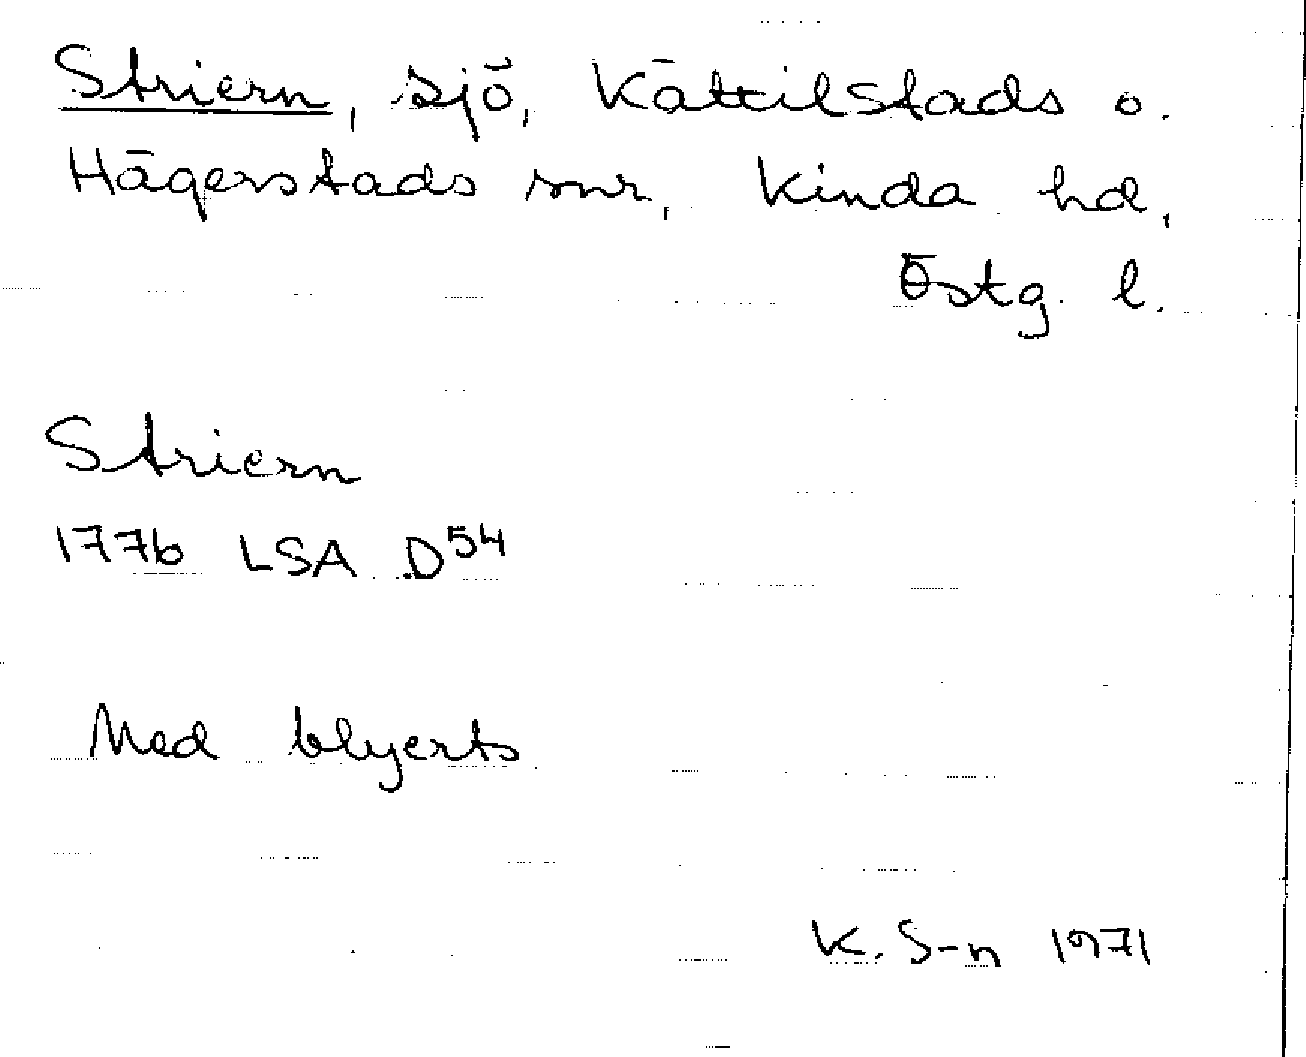 Striern, sjö, Kättilstads o.
Hägerstads snr, Kinda hd,
Östg. l.
Striern
1776 LSA D54
Med blyerts
K. S-n 1971